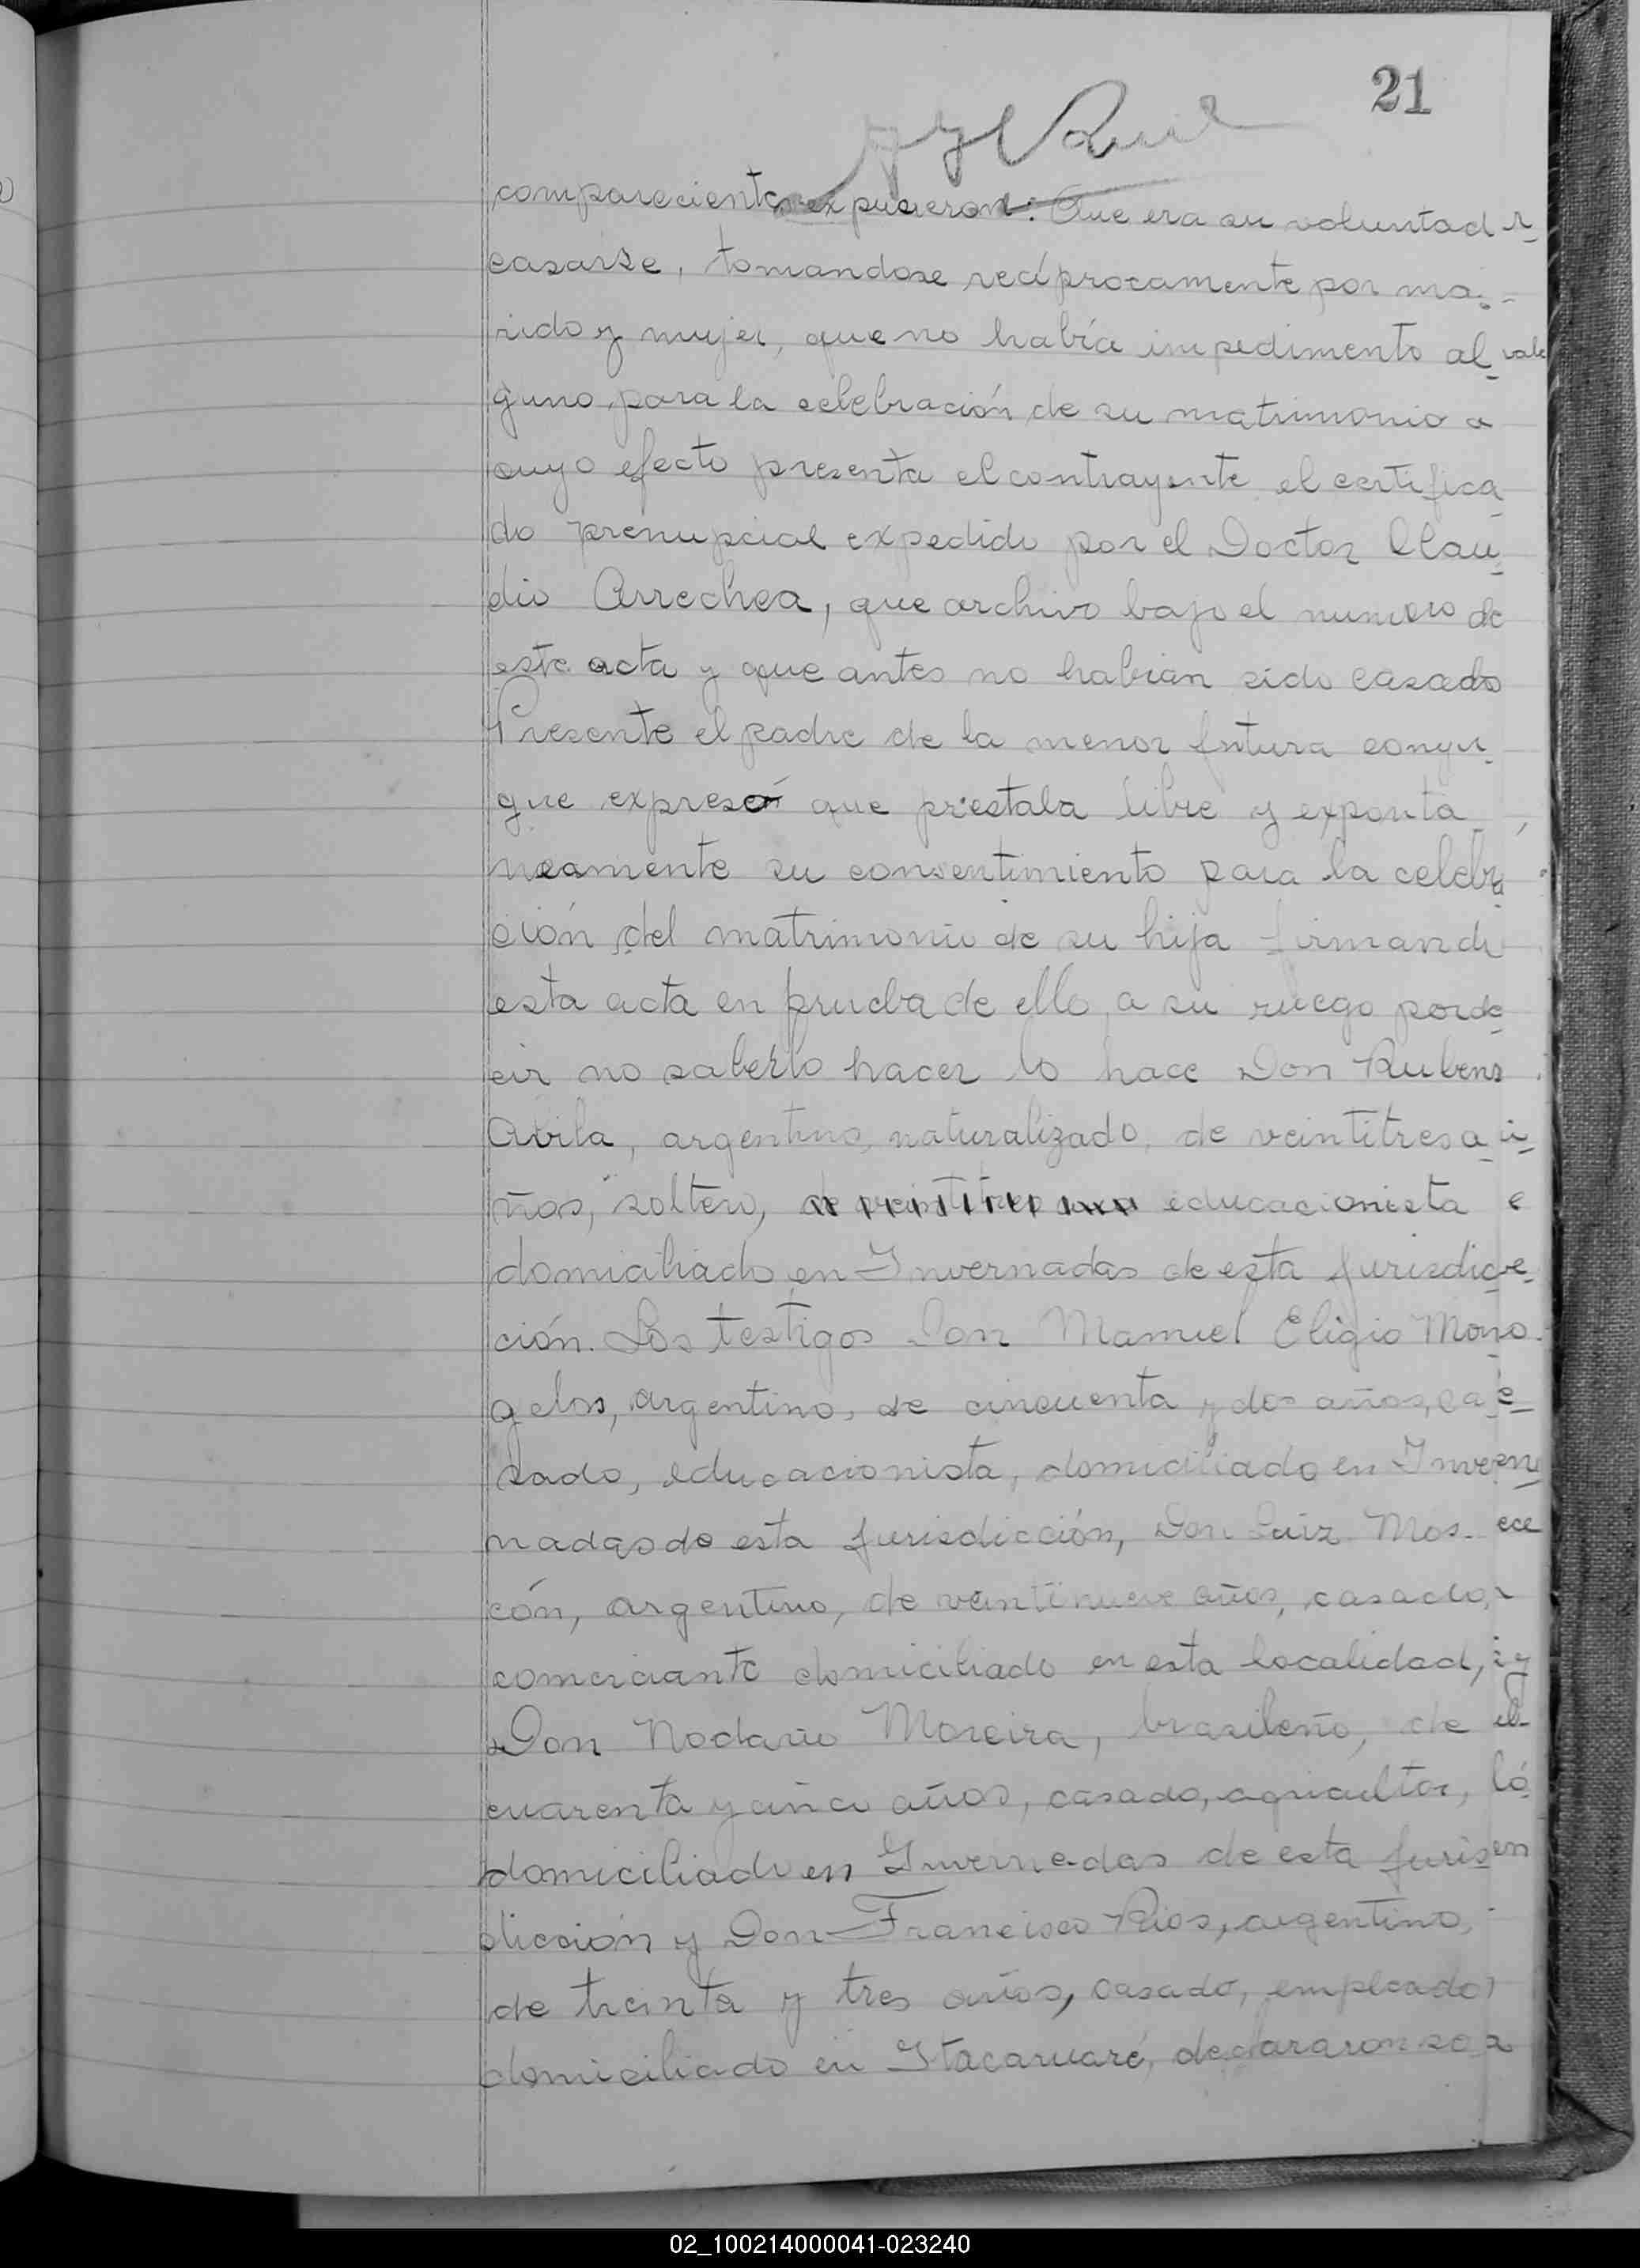 21
comparecientes expusieron: Que era su voluntad
casarse, tomandose recíprocamente por ma-
rido y mujer, que no había impedimento al
guno para la celebración de su matrimonio a
cuyo efecto presenta el contrayente el certifica
do prenupcial expedido por el Doctor Clau
dio Arrechea, que archivo bajo el numero de
este acta y que antes no habian sido casado
Presente el padre de la menor futura conyu
gue expresó que prestaba libre y exponta
neamente su consentimiento para la celebra
ción del matrimonio de su hija firmando
esta acta en prueba de ello a su ruego por de
cir no saberlo hacer lo hace Don Rubens
Avila, argentino, naturalizado, de veintitres a
ños, soltero, educacionista
domiciliado en Invernadas de esta jurisdic
ción. Los testigos Don Manuel Eligio Mono
gelos, argentino, de cincuenta y dos años, ca
sado, educacionista, domiciliado en Inver
nadas de esta jurisdicción, Don Luiz Mos-
cón, argentino, de veintinueve años, casado,
comerciante domiciliado en esta localidad,
Don Nodario Moreira, brasileño, de
cuarenta y cinco años, casado, agricultor,
domiciliado en Invernadas de esta juris
dicción y Don Francisco Rios, argentino,
de treinta y tres años, casado, empleado
domiciliado en Itacaruaré, declararon
02_100214000041-023240